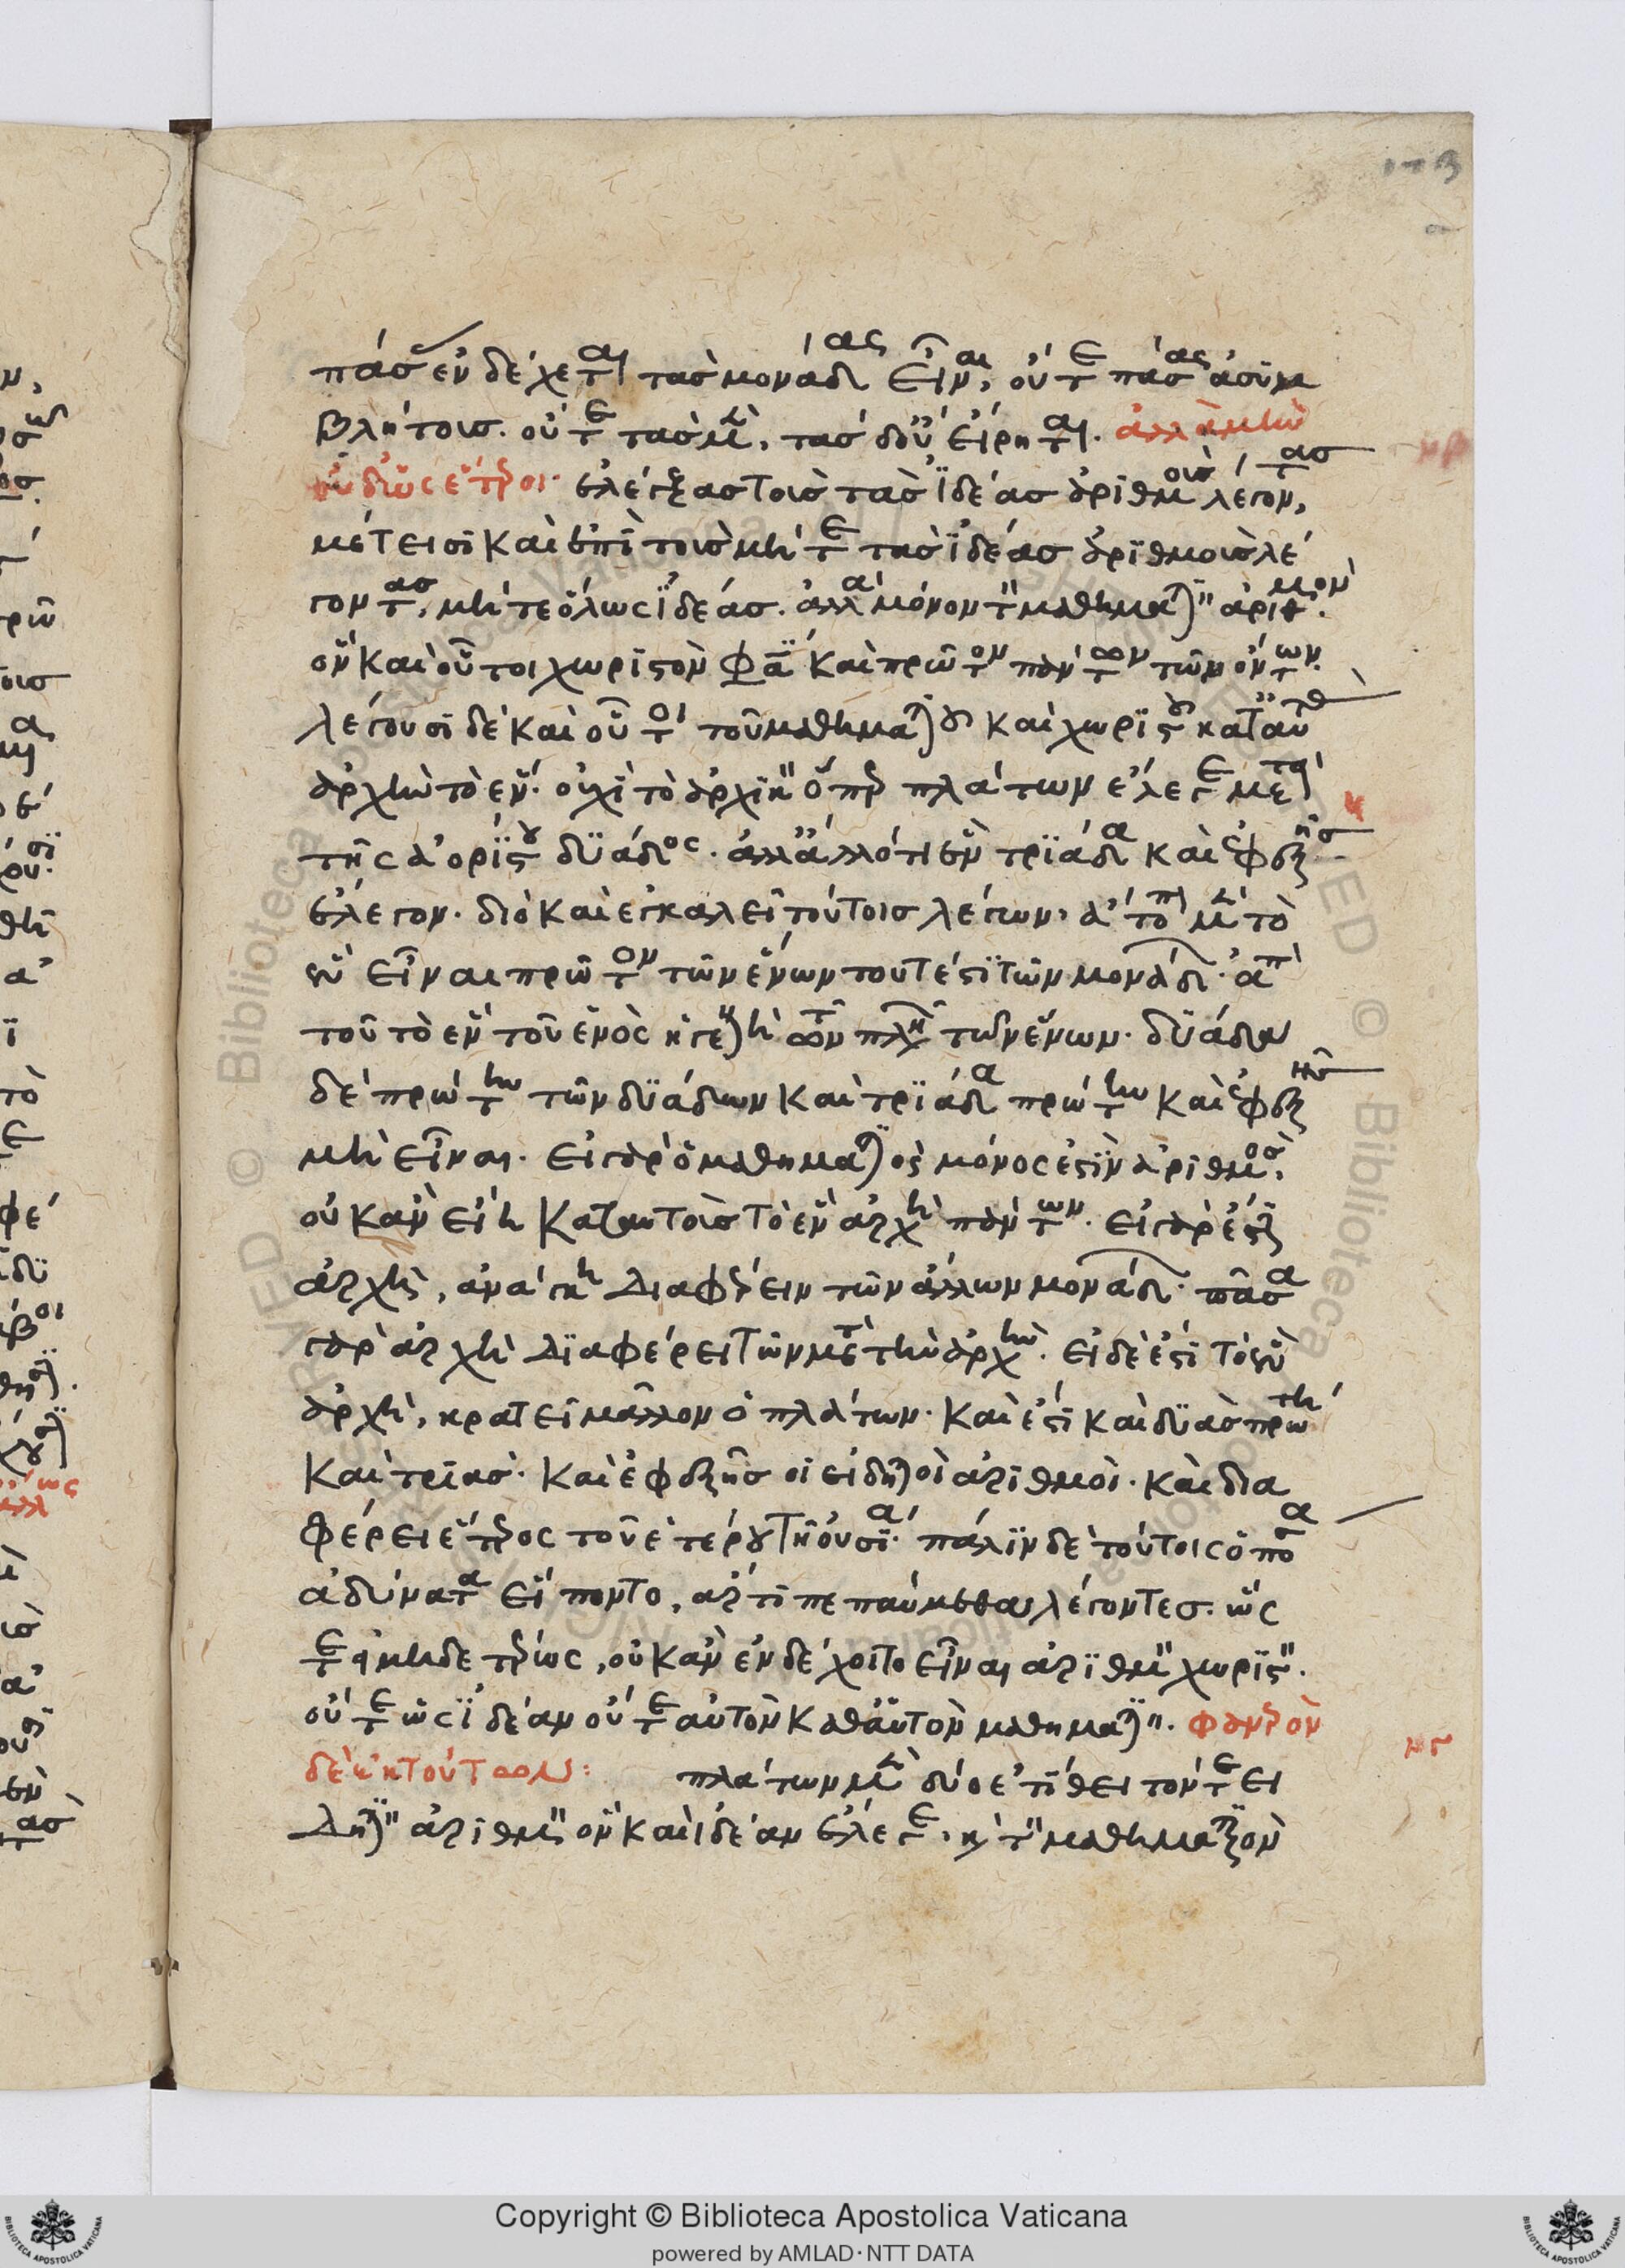 πάσας ἐνδέχεται τὰς μονάδας εἶναι, οὔτε πάσας ἀσυμ
βλήτους. οὔτε τὰς μὲν, τὰς δ' οὔ, εἴρηται. ἀλλὰ μὴν
οὐδ' ὡς ἕτεροι. ἐλέγξας τοὺς τὰς ἰδέας ἀριθμοὺς λέγοντας,
μέτεισι καὶ ἐπὶ τοὺς μήτε τὰς ἰδέας ἀριθμοὺς λέ
γοντας, μήτε ὅλως ἰδέας. ἀλλὰ μόνον τὸν μαθηματικὸν ἀριθμόν.
ὃν καὶ οὗτοι χωριστὸν φασὶ καὶ πρῶτον πάντων τῶν ὄντων.
λέγουσι δὲ καὶ οὗτοι τοῦ μαθηματικοῦ καὶ χωριστοῦ κατ' αὐτοὺς
ἀρχὴν τὸ ἕν. οὐχὶ τὸ ἀρχικὸν ὅπερ πλάτων ἔλεγε μετὰ
τῆς ἀορίστου δυάδος. ἀλλ' ἄλλό τι ἓν τριάδα καὶ ἐφεξῆς
ἔλεγον. διὸ καὶ ἐγκαλεῖ τούτοις λέγων, ἄτοπον μὲν τὸ
ἓν εἶναι πρῶτον τῶν ἕνων τουτέστι τῶν μονάδων. ἀπὸ
τοῦ τὸ ἓν τοῦ ἑνὸς τῶν πλῆθος τῶν ἕνων. δυάδα
δὲ πρώτην τῶν δυάδων καὶ τριάδα πρώτην καὶ ἐφεξῆς
μὴ εἶναι. εἰ γὰρ ὁ μαθηματικὸς μόνος ἐστὶν ἀριθμός,
οὐκ ἂν εἴη κατ' αὐτοὺς τὸ ἓν ἀρχὴ πάντων. εἰ γὰρ ἔσται
ἀρχὴ, ἀνάγκη διαφέρειν τῶν ἄλλων μονάδων. πᾶσα
γὰρ ἀρχὴ διαφέρει τῶν μετὰ τὴν ἀρχήν. εἰ δὲ ἐστὶ τὸ ἓν
ἀρχὴ, κρατεῖ μᾶλλον ὁ πλάτων. καὶ ἔστι καὶ δυὰς πρώτη
καὶ τριάς. καὶ ἐφεξῆς οἱ εἰδητικοὶ ἀριθμοί. καὶ δια
φέρει ἕτερος τοῦ ἑτέρου τῇ οὐσίᾳ. πάλιν δὲ τούτοις ὁποῖα
ἀδύνατα εἵποντο, ἄρτι πεπαύμεθα λέγοντες. ὥς
τε εἰ μηδετέρως, οὐκ ἂν ἐνδέχοιτο εἶναι ἀριθμὸν χωριστόν.
οὔτε ὡς ἰδέαν οὔτε αὐτὸν καθ' αὑτὸν μαθηματικόν. φανερὸν
δὲ ἐκ τούτων: πλάτων μὲν δύο ἐτίθει τόν τε εἰ
δητικὸν ἀριθμὸν ὃν καὶ ἰδέαν ἔλεγε, καὶ τὸν μαθηματικὸν
Copyright © Biblioteca Apostolica Vaticana
powered by AMLAD·NTT DATA